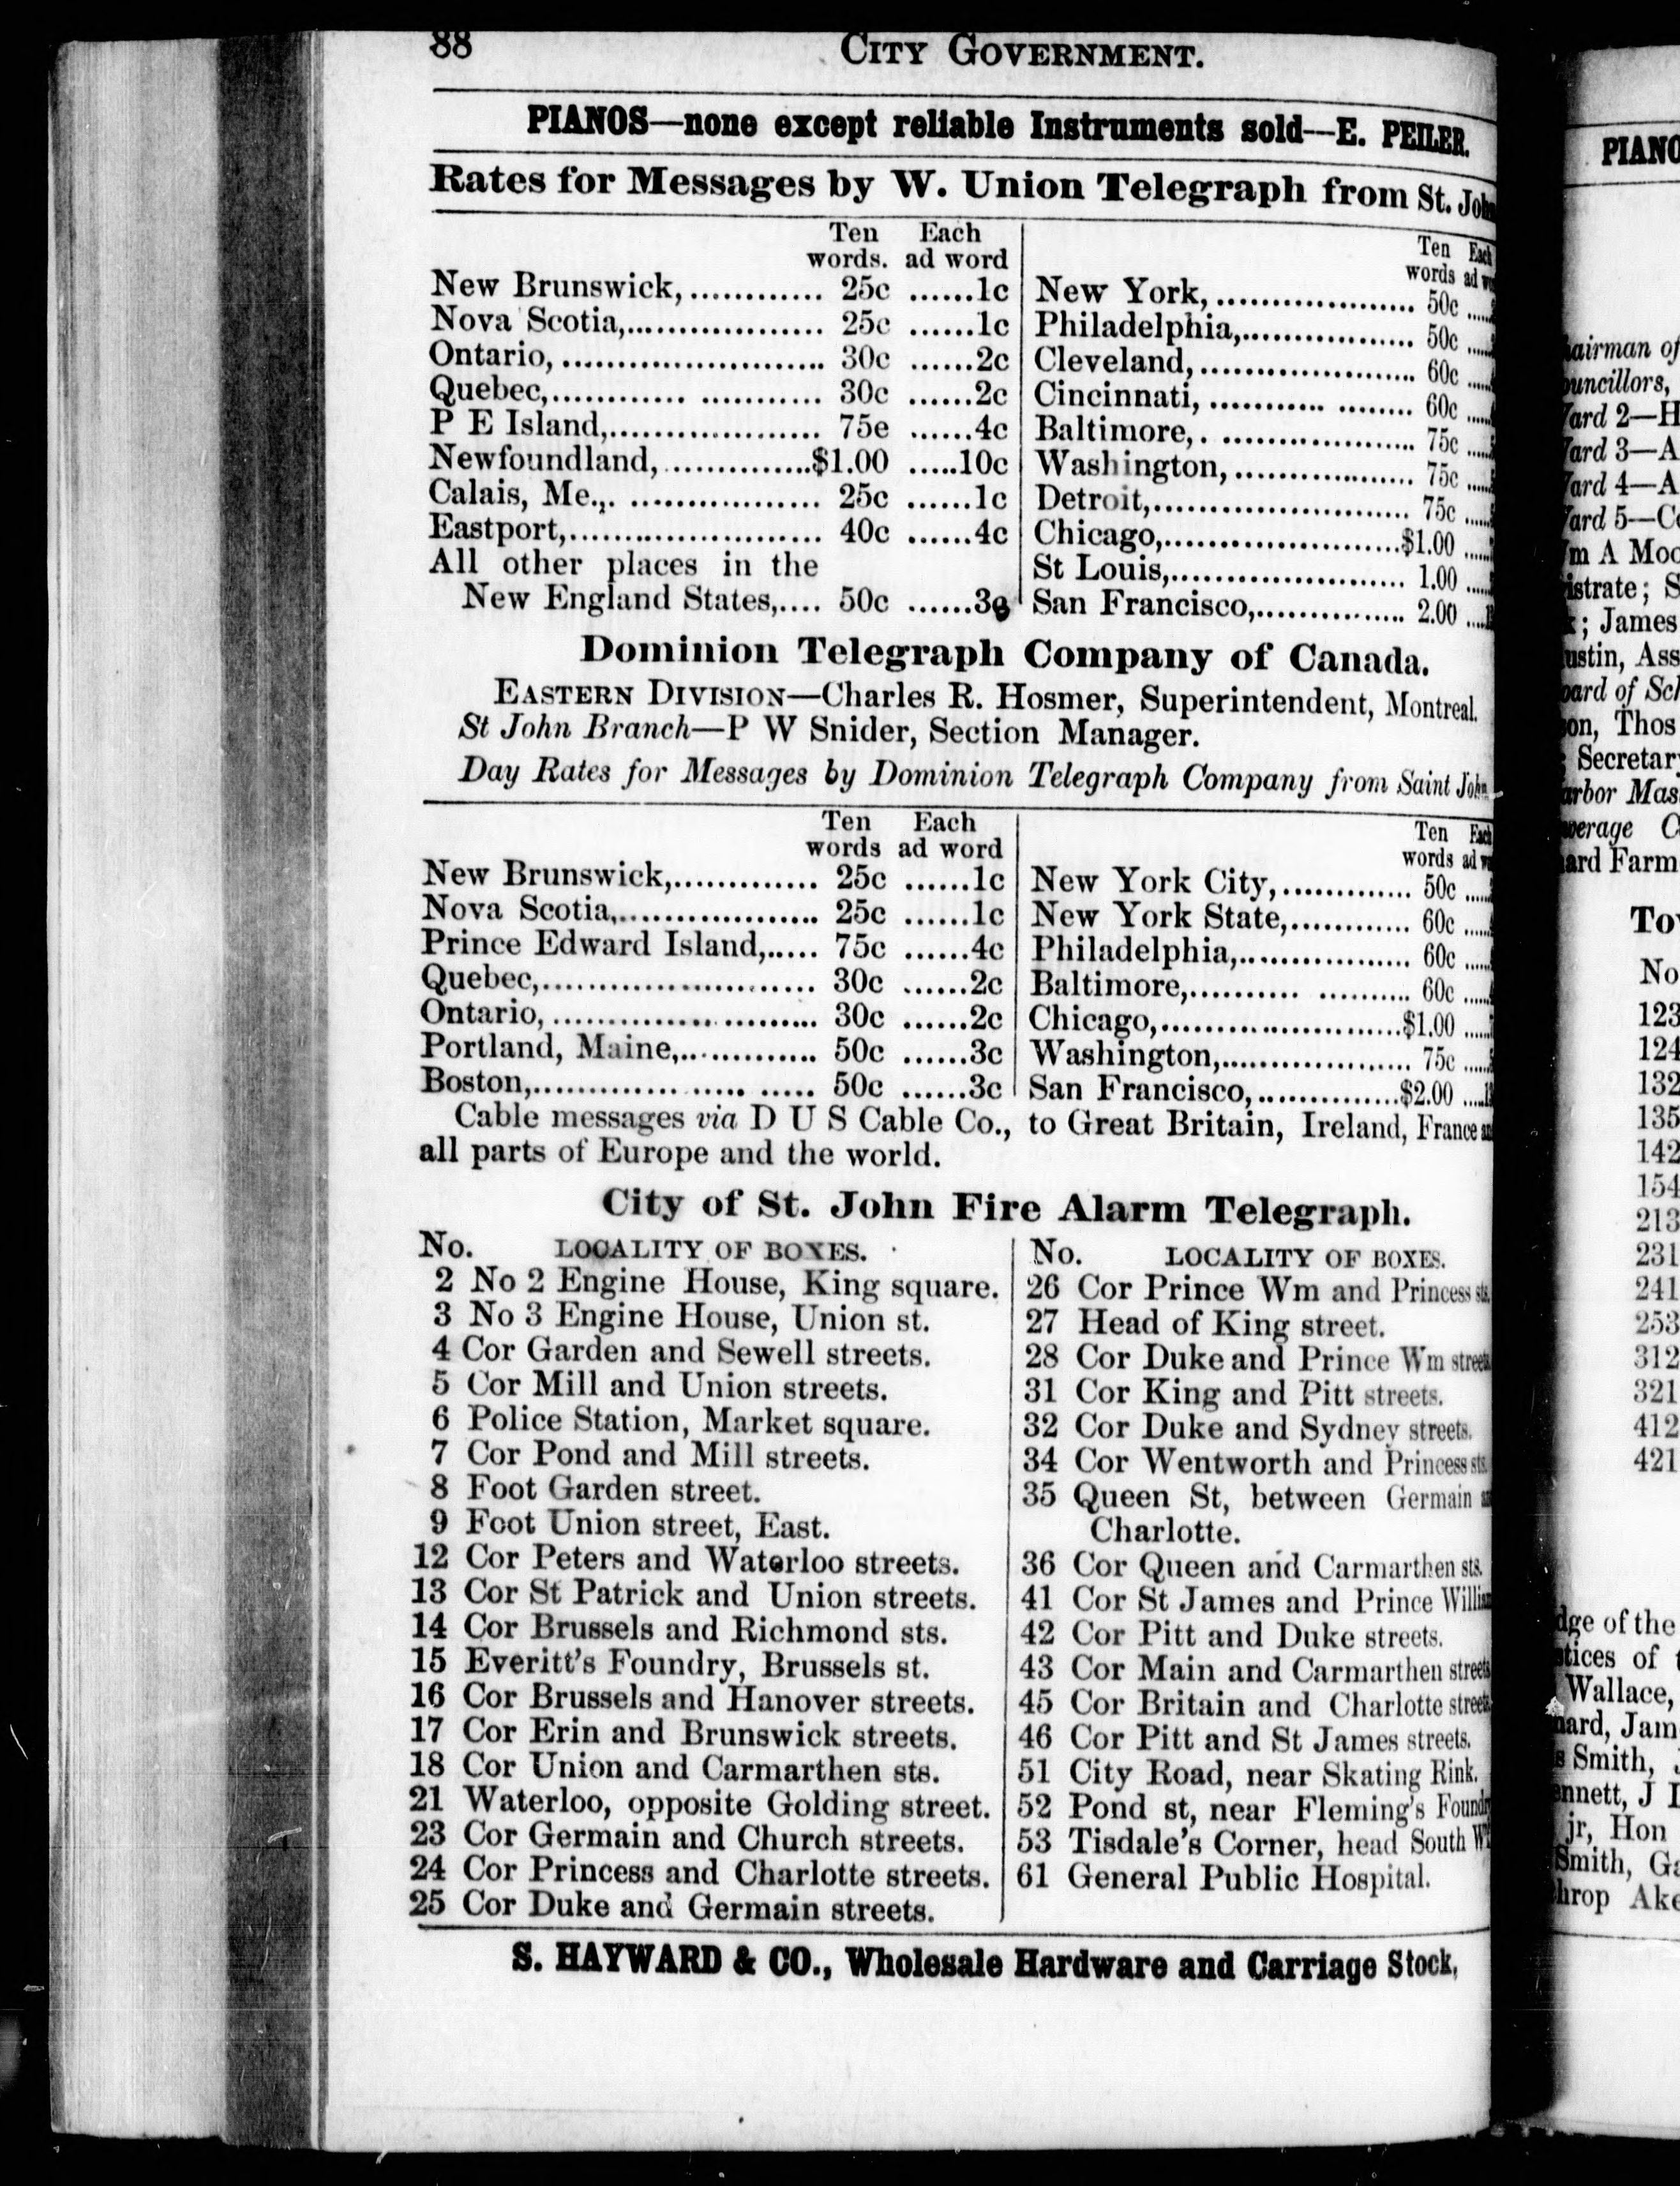 88
CITY GOVERNMENT.
PIANOS—none except reliable Instruments sold—E. PEILER.
Rates for Messages by W. Union Telegraph from St.
Ten Each
words. ad word
New Brunswick,............ 25c ......1c
Nova Scotia,.................. 25c ......1c
Ontario,........................ 30c ......2c
Quebec,............ ........... 30c ......2c
P E Island,................... 75e ......4c
Newfoundland,..............$1.00 .....10c
Calais, Me.,. .................. 25c ......1c
Eastport,....................... 40c ......4c
All other places in the
New England States,.... 50c ......3c
Ten
words
New York,................... 50c
Philadelphia,................. 50c
Cleveland,...................... 60c
Cincinnati, ............ ........ 60c
Baltimore,. .................... 75c
Washington,.................. 75c
Detroit,......................... 75c
Chicago,........................$1.00
St Louis,....................... 1.00
San Francisco,............... 2.00
Dominion Telegraph Company of Canada.
EASTERN DIVISION—Charles R. Hosmer, Superintendent, Montreal.
St John Branch—P W Snider, Section Manager.
Day Rates for Messages by Dominion Telegraph Company from Saint John
Ten Each
words ad word
New Brunswick,............. 25c ......1c
Nova Scotia,................... 25c ......1c
Prince Edward Island,..... 75c ......4c
Quebec,.......................... 30c ......2c
Ontario,......................... 30c ......2c
Portland, Maine,............. 50c ......3c
Boston,.............. ..... ..... 50c ......3c
Ten
words
New York City,............. 50c
New York State,............ 60c
Philadelphia,................. 60c
Baltimore,.......... .......... 60c
Chicago,........................$1.00
Washington,................... 75c
San Francisco,..............$2.00
Cable messages via D U S Cable Co., to Great Britain, Ireland, France
all parts of Europe and the world.
City of St. John Fire Alarm Telegraph.
No. LOCALITY OF BOXES.
2 No 2 Engine House, King square.
3 No 3 Engine House, Union st.
4 Cor Garden and Sewell streets.
5 Cor Mill and Union streets.
6 Police Station, Market square.
7 Cor Pond and Mill streets.
8 Foot Garden street.
9 Foot Union street, East.
12 Cor Peters and Waterloo streets.
13 Cor St Patrick and Union streets.
14 Cor Brussels and Richmond sts.
15 Everitt's Foundry, Brussels st.
16 Cor Brussels and Hanover streets.
17 Cor Erin and Brunswick streets.
18 Cor Union and Carmarthen sts.
21 Waterloo, opposite Golding street.
23 Cor Germain and Church streets.
24 Cor Princess and Charlotte streets.
25 Cor Duke and Germain streets.
No. LOCALITY OF BOXES.
26 Cor Prince Wm and Princess sts.
27 Head of King street.
28 Cor Duke and Prince Wm
31 Cor King and Pitt streets.
32 Cor Duke and Sydney streets.
34 Cor Wentworth and Princess sts.
35 Queen St, between Germain
Charlotte.
36 Cor Queen and Carmarthen sts.
41 Cor St James and Prince
42 Cor Pitt and Duke streets.
43 Cor Main and Carmarthen
45 Cor Britain and Charlotte
46 Cor Pitt and St James streets.
51 City Road, near Skating Rink.
52 Pond st, near Fleming's
53 Tisdale's Corner, head South
61 General Public Hospital.
S. HAYWARD & CO., Wholesale Hardware and Carriage Stock,
of
Ward 2—
Ward 3—A
Ward 4—A
Ward 5—
A
; James
of
Thos
Secretary
Farm
No
123
124
132
135
142
154
213
231
241
253
312
321
412
421
of the
of
Wallace,
Smith,
J
jr, Hon
Smith,